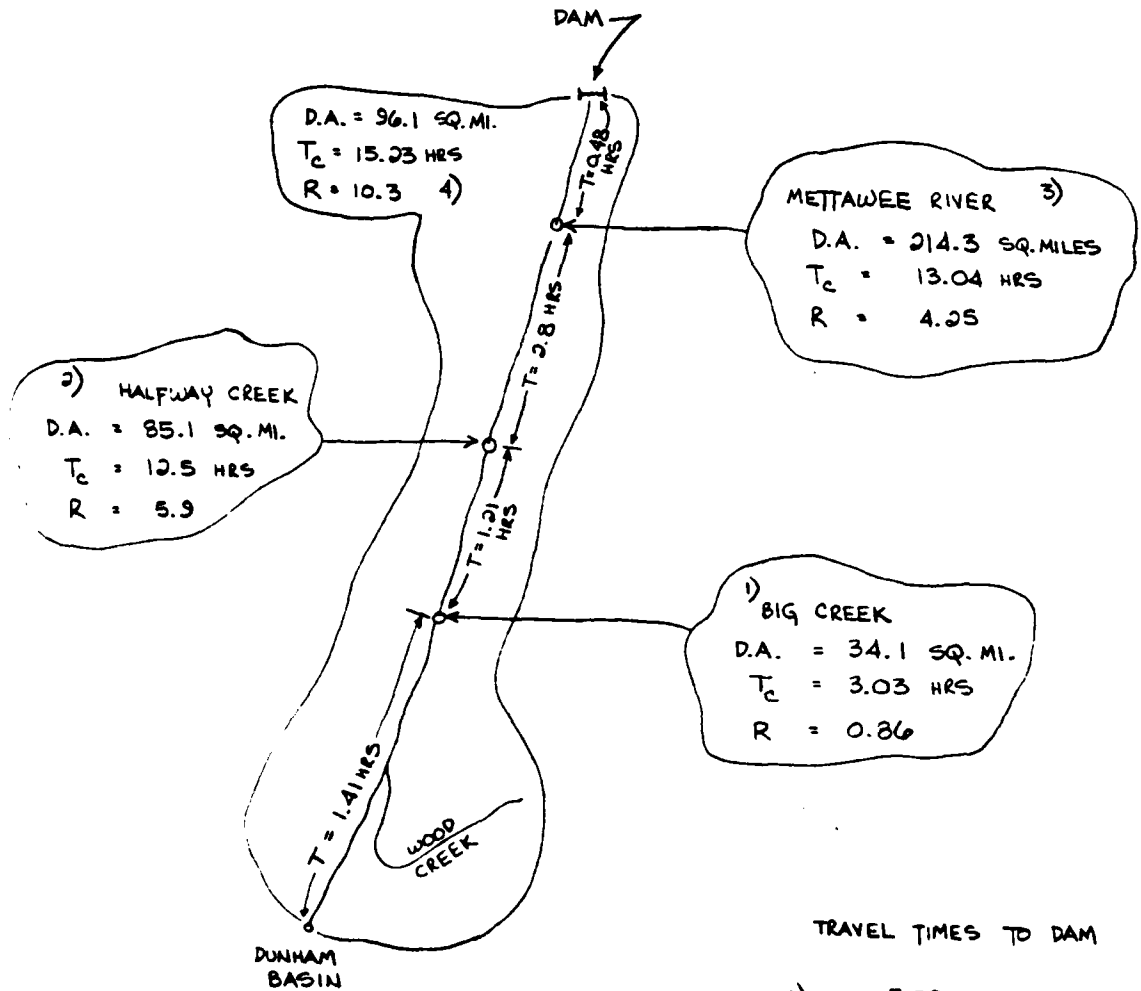 DAM
D.A. = 96.1 SQ.MI.
Tc = 15.23 HRS
R = 10.3 4)
T=0.48
HRS
METTAWEE RIVER 3)
D.A. = 214.3 SQ.MILES
Tc = 13.04 HRS
R = 4.25
T= 2.8 HRS
2) HALFWAY CREEK
D.A. = 85.1 SQ.MI.
Tc = 12.5 HRS
R = 5.9
T= 1.21
HRS
1) BIG CREEK
D.A. = 34.1 SQ.MI.
Tc = 3.03 HRS
R = 0.86
T = 1.41 HRS
WOOD
CREEK
DUNHAM
BASIN
TRAVEL TIMES TO DAM